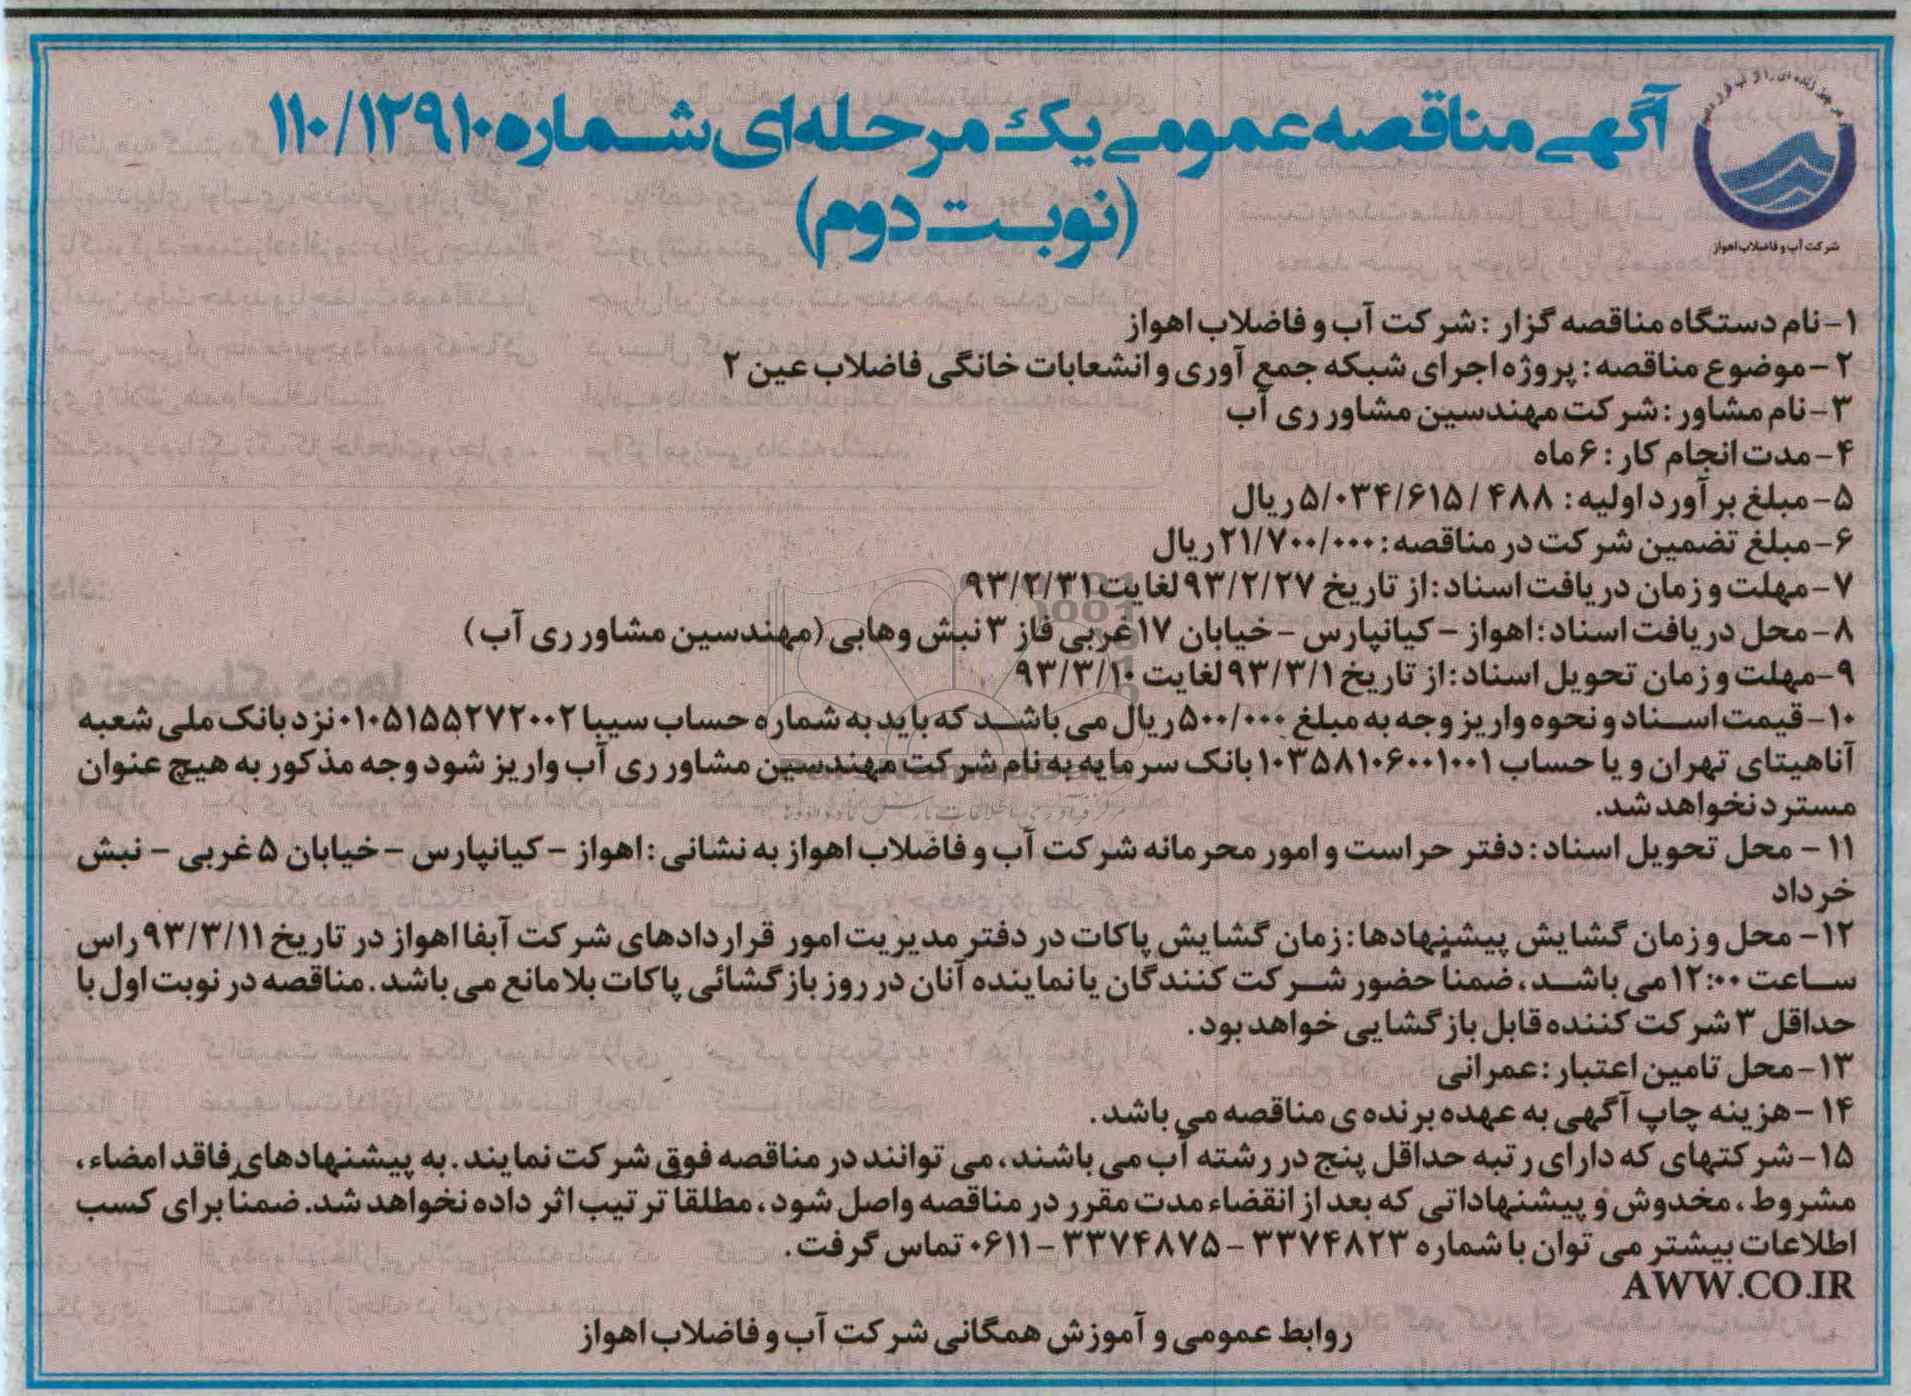 آگهی مناقصه عمومی یک مرحله‌ای شماره ۱۱۰/۱۲۹۱۰
(نوبت دوم)
شرکت آب و فاضلاب اهواز
۱-نام دستگاه مناقصه گزار : شرکت آب و فاضلاب اهواز
۲ -موضوع مناقصه : پروژه اجرای شبکه جمع آوری و انشعابات خانگی فاضلاب عین ۲
۳-نام مشاور : شرکت مهندسین مشاور ری آب
۴-مدت انجام کار : ۶ ماه
۵- مبلغ بر آورد اولیه : ۵/۰۳۴/۶۱۵/۴۸۸ ریال
۶-مبلغ تضمین شرکت در مناقصه : ۲۱/۷۰۰/۰۰۰ ریال
۷-مهلت و زمان دریافت اسناد : از تاریخ ۹۳/۲/۲۷ لغایت ۹۳/۲/۳۱
۸- محل دریافت اسناد : اهواز - کیانپارس - خیابان ۱۷ غربی فاز ۳ نبش وهابی (مهندسین مشاور ری آب)
۹-مهلت و زمان تحویل اسناد : از تاریخ ۹۳/۳/۱ لغایت ۹۳/۳/۱۰
۱۰-قیمت اسناد و نحوه واریز وجه به مبلغ ۵۰۰/۰۰۰ ریال می باشد که باید به شماره حساب سیبا ۰۱۰۵۱۵۵۲۷۲۰۰۲ نزد بانک ملی شعبه
آناهیتای تهران و یا حساب ۱۰۳۵۸۱۰۶۰۰۱۰۰۱ بانک سرمایه به نام شرکت مهندسین مشاور ری آب واریز شود وجه مذکور به هیچ عنوان
مسترد نخواهد شد.
۱۱ - محل تحویل اسناد : دفتر حراست و امور محرمانه شرکت آب و فاضلاب اهواز به نشانی : اهواز - کیانپارس - خیابان ۵ غربی - نبش
خرداد
۱۲- محل و زمان گشایش پیشنهادها : زمان گشایش پاکات در دفتر مدیریت امور قراردادهای شرکت آبفا اهواز در تاریخ ۹۳/۳/۱۱ راس
ساعت ۱۲:۰۰ می باشد ، ضمنا حضور شرکت کنندگان یا نماینده آنان در روز بازگشائی پاکات بلامانع می باشد . مناقصه در نوبت اول با
حداقل ۳ شرکت کننده قابل بازگشایی خواهد بود .
۱۳-محل تامین اعتبار : عمرانی
۱۴ -هزینه چاپ آگهی به عهده برنده ی مناقصه می باشد .
۱۵-شرکتهای که دارای رتبه حداقل پنج در رشته آب می باشند ، می توانند در مناقصه فوق شرکت نمایند . به پیشنهادهای فاقد امضاء ،
مشروط ، مخدوش و پیشنهاداتی که بعد از انقضاء مدت مقرر در مناقصه واصل شود ، مطلقا ترتیب اثر داده نخواهد شد. ضمنا برای کسب
اطلاعات بیشتر می توان با شماره ۳۳۷۴۸۲۳ - ۳۳۷۴۸۷۵ -۰۶۱۱ تماس گرفت .
AWW.CO.IR
روابط عمومی و آموزش همگانی شرکت آب و فاضلاب اهواز